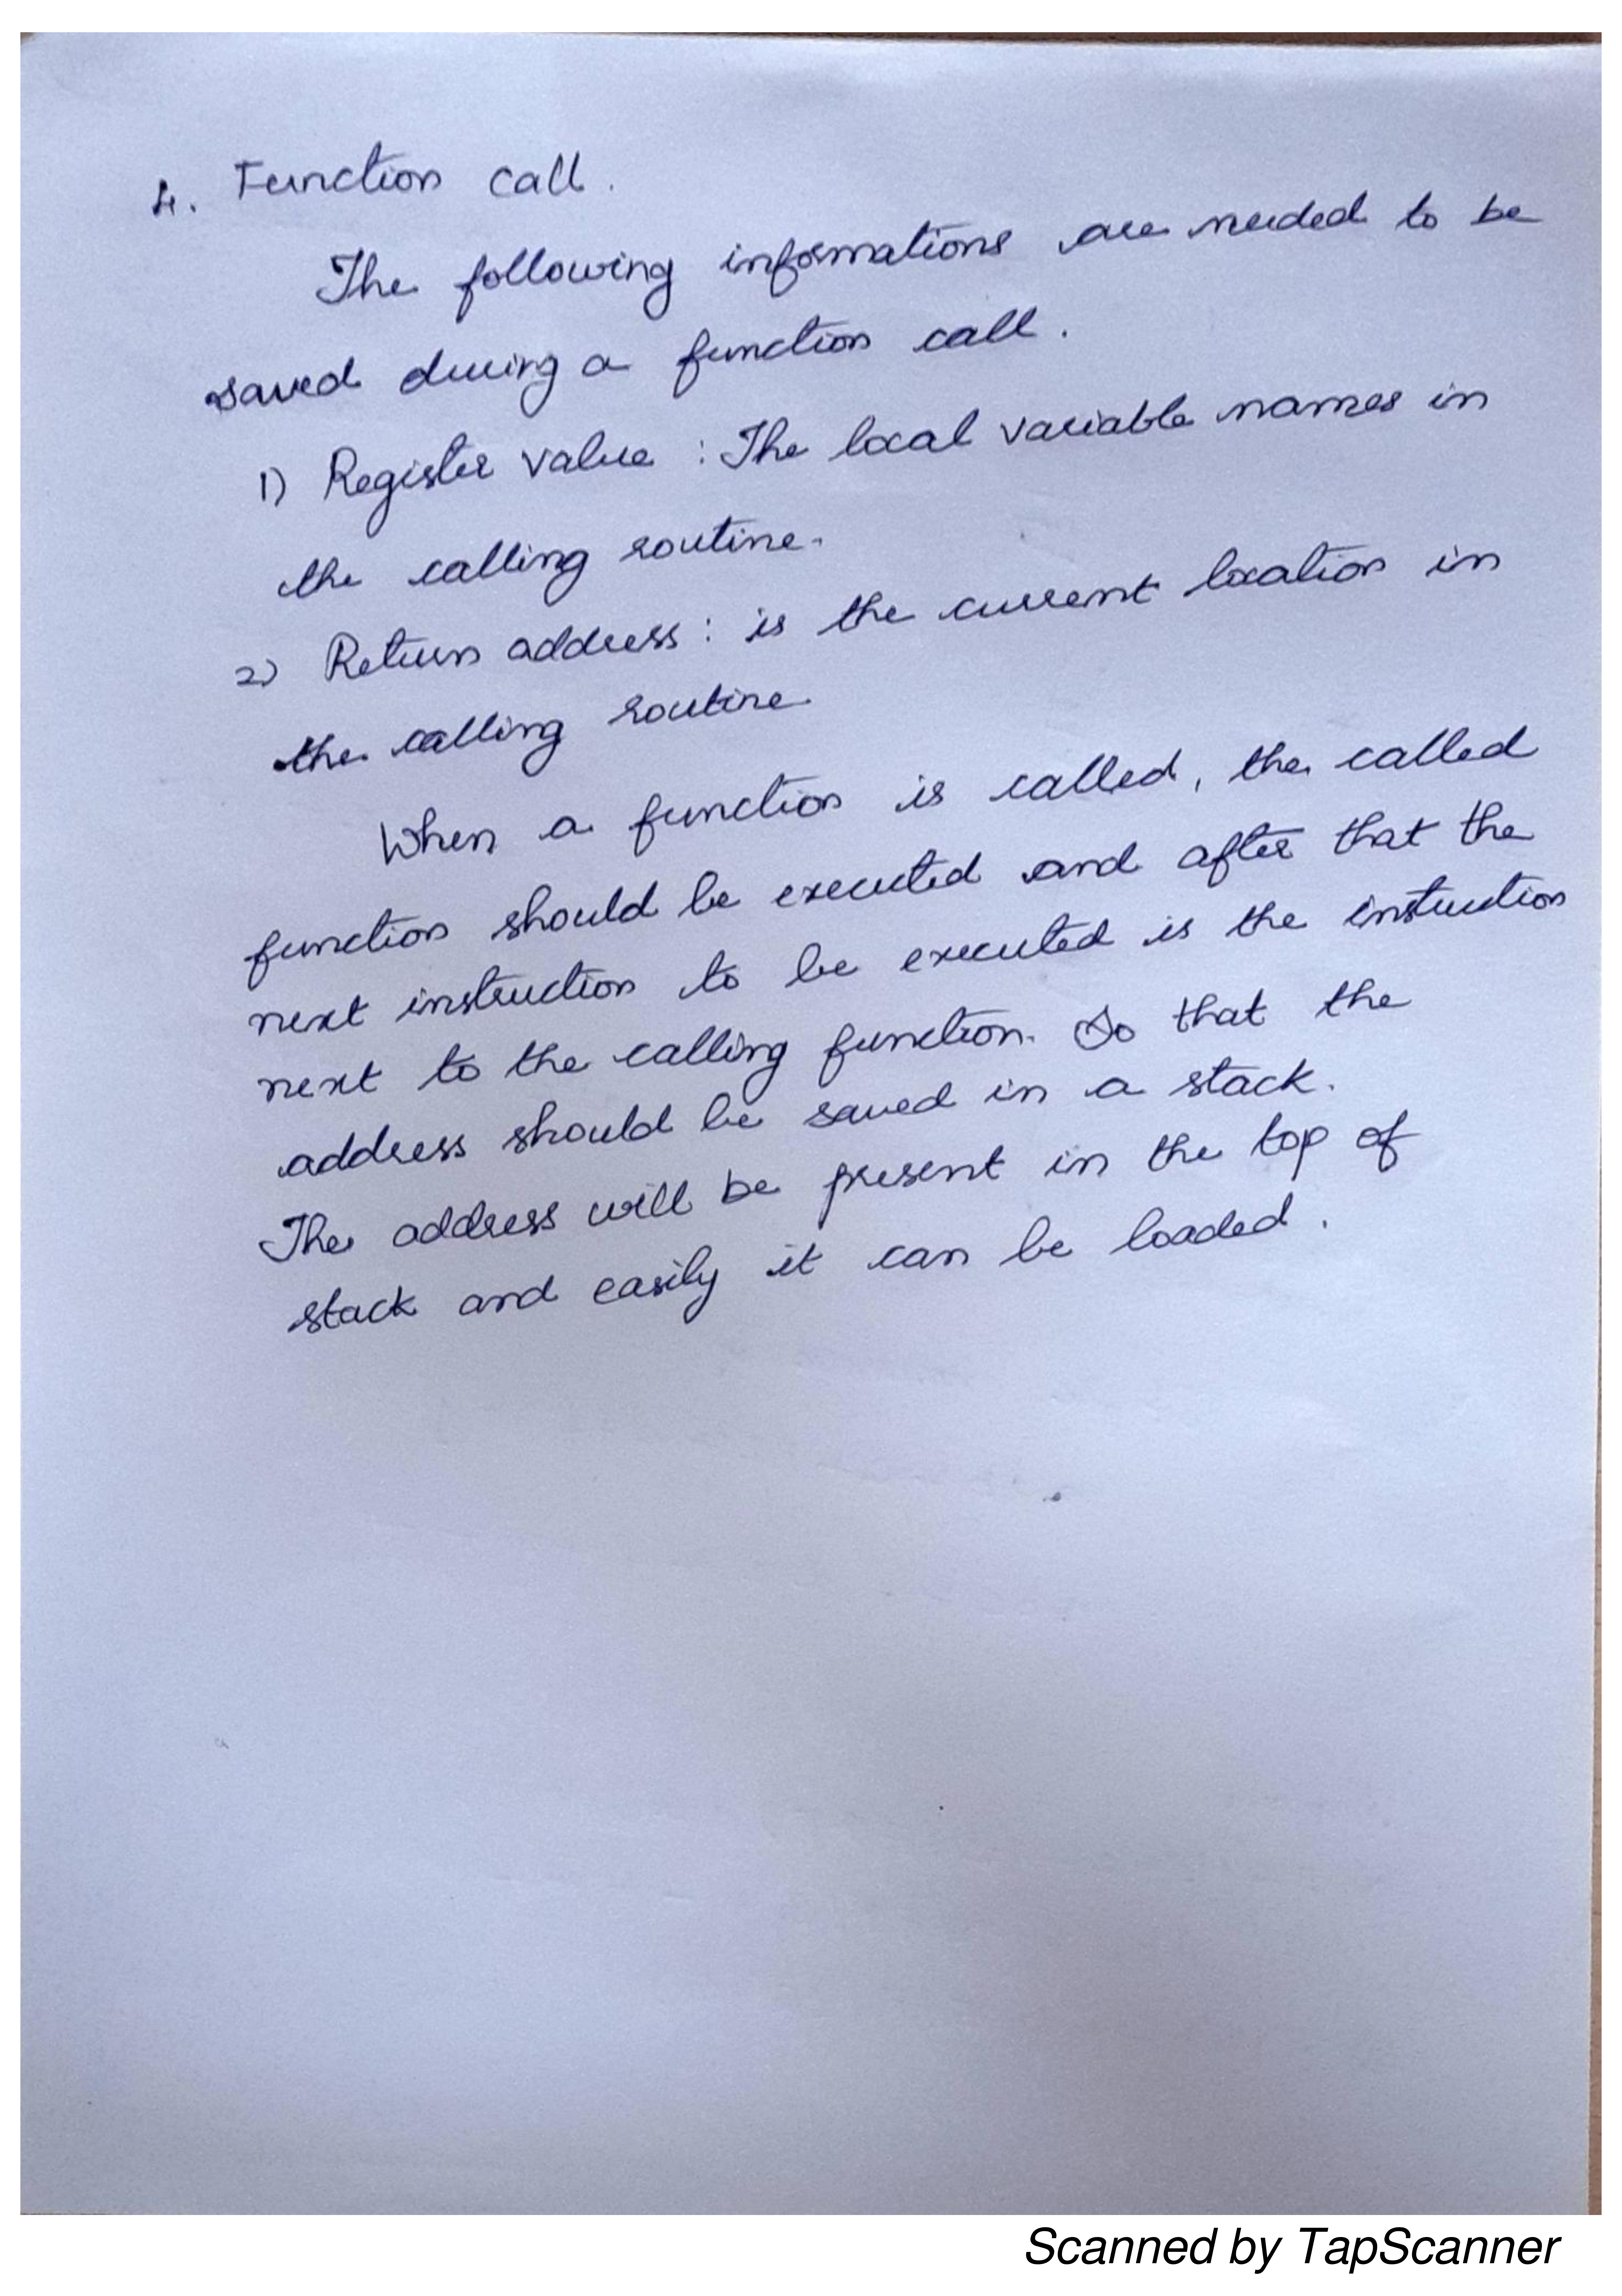 4. Function call.
The following informations are needed to be
saved during a function call.
1) Register value : The local variable names in
the calling routine.
2) Return address : is the current location in
the calling routine.
When a function is called, the called
function should be executed and after that the
next instruction to be executed is the instruction
next to the calling function. So that the
address should be saved in a stack.
The address will be present in the top of
stack and easily it can be loaded.
Scanned by TapScanner